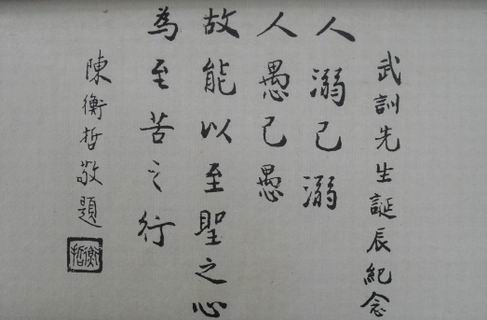 武訓先生誕辰紀念
人溺己溺
人愚己愚
故能以至聖之心
為至苦之行
陳衡哲敬題
衡哲